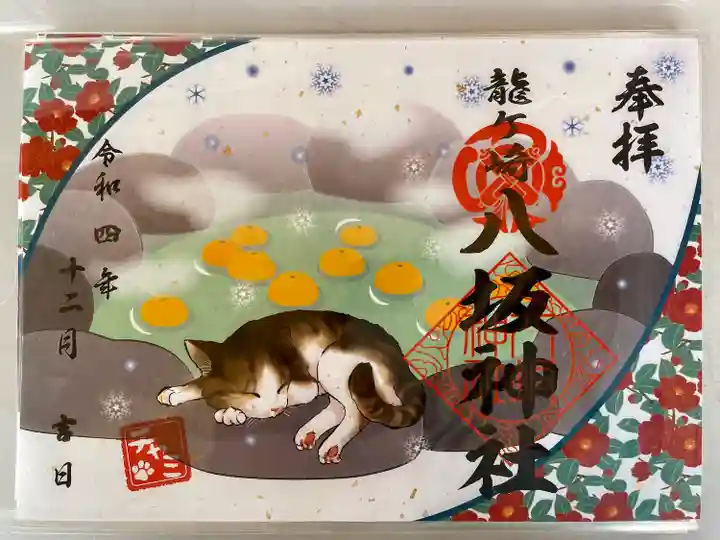 奉拝
龍ケ崎
八坂神社
令和四年
十二月 吉日